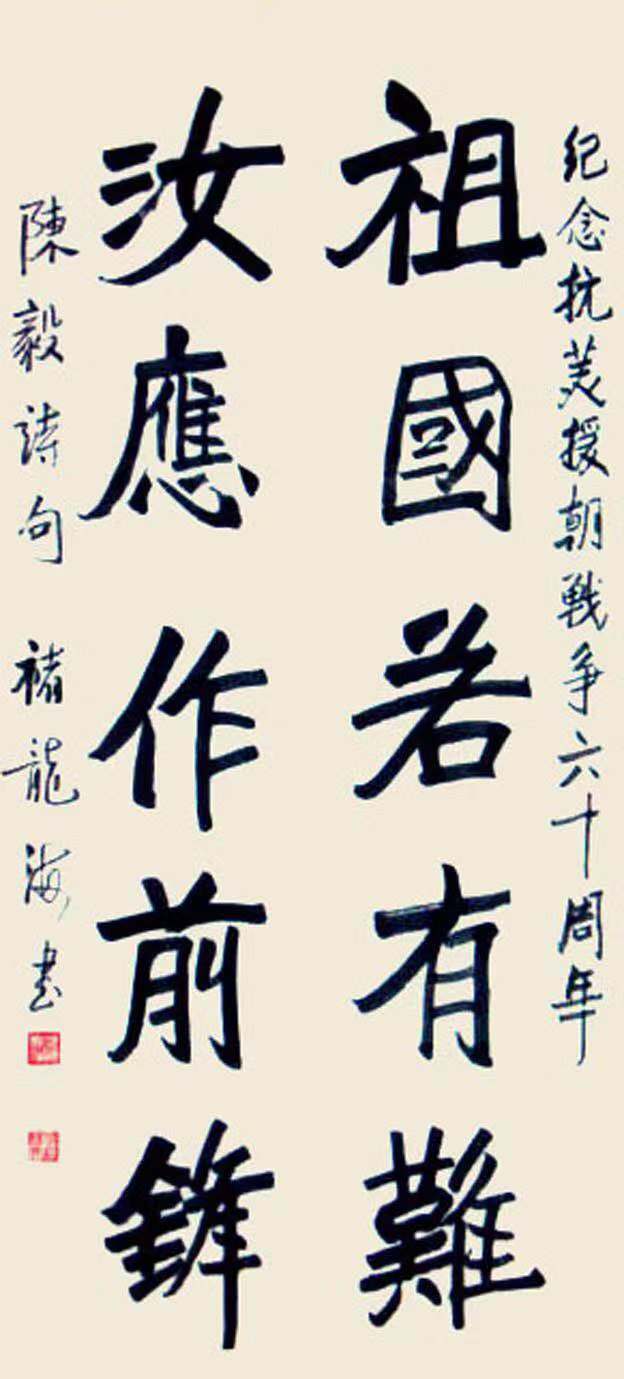 纪念抗美援朝戰争六十周年
祖國若有難
汝應作前鋒
陳毅詩句 褚龍海书